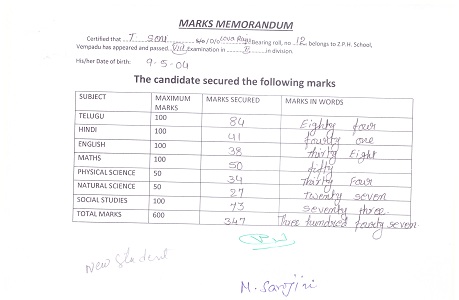 MARKS MEMORANDUM
Certified that T Soni S/o / D/o Bearing roll, no 12 belongs to Z.P.H. School,
Vempadu has appeared and passed. VIII Examination in B in division.
His/her Date of birth: 9-5-04
The candidate secured the following marks
SUBJECT MAXIMUM MARKS MARKS SECURED MARKS IN WORDS
TELUGU 100 84 Eighty four
HINDI 100 41 fourty one
ENGLISH 100 38 thirty Eight
MATHS 100 50 fifty
PHYSICAL SCIENCE 50 34 Thirty Four
NATURAL SCIENCE 50 27 Twenty seven
SOCIAL STUDIES 100 73 Seventy three
TOTAL MARKS 600 347 Three hundred fourty seven
New student
M. Sarojini